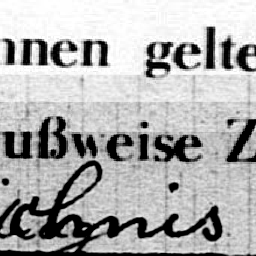 nnen gelte
ußweise Z
ichnis